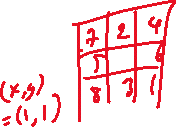 7 2 4
5 6
8 3 1
(x,y)
=(1,1)